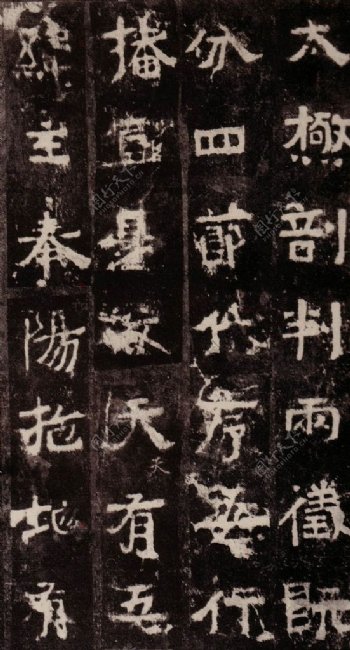 太極剖判兩儀既
分四節代序五行
播宣是故天有五
緯主奉陽抱地有